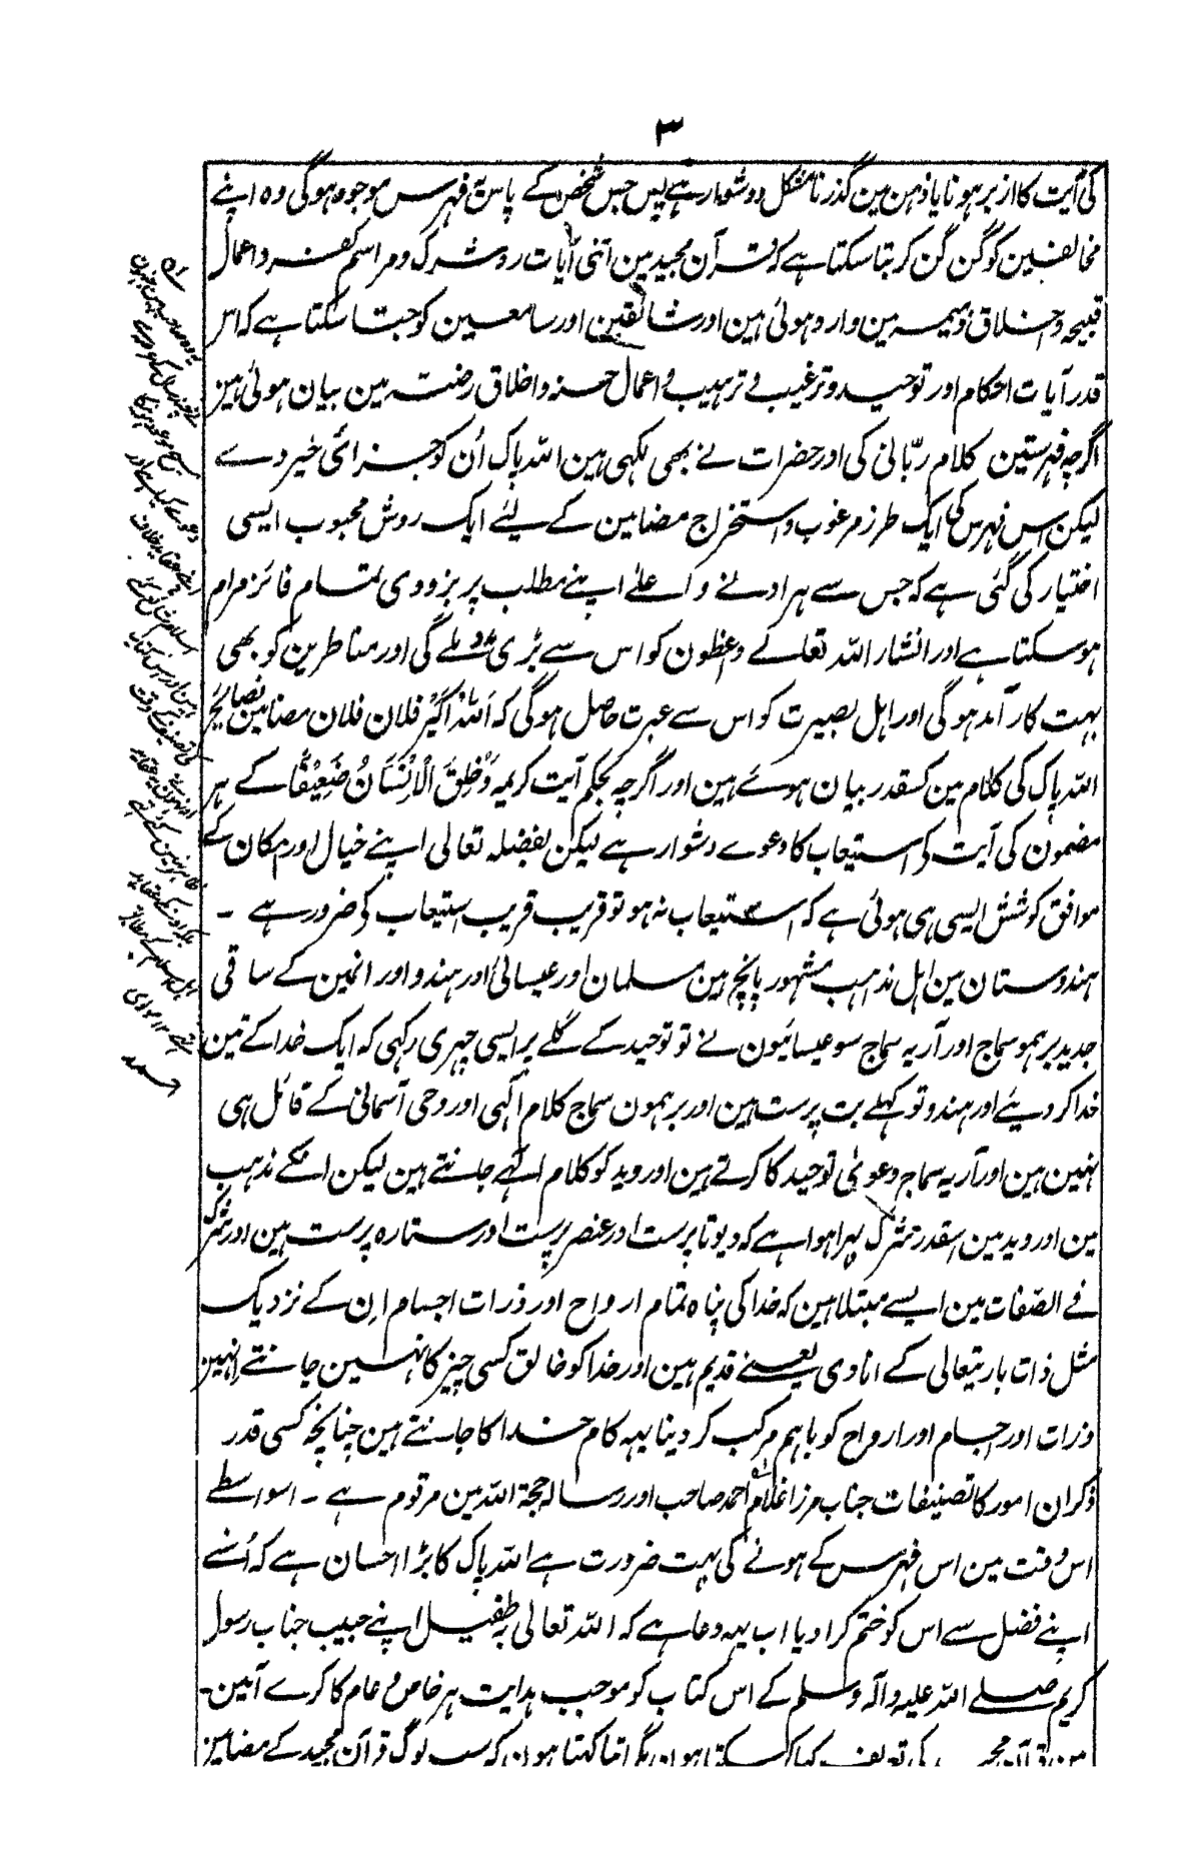 ۳
کی آیت کا ازبر ہونا یا ذہن مین گذرنا مشکل ودشوار ہے پس جس شخص کے پاس یہ فہرس موجود ہوگی وہ اپنے
مخالفین کو گن گن کر بتا سکتا ہے کہ قرآن مجید مین اتنی آیات رد شرک ومراسم کفر واعمال
قبیحہ واخلاق ذمیمہ مین وارد ہوئی ہین اور شائقین اور سامعین کو جتا سکتا ہے کہ اس
قدر آیات احکام اور توحید وترغیب وترہیب واعمال حسنہ واخلاق مین بیان ہوئی ہین
اگرچہ فہرستین کلام ربّانی کی اور حضرات نے بھی لکہی ہین اللہ پاک اُن کو جزائی خیر دے
لیکن اس فہرس کی ایک طرز مرغوب واستخراج مضامین کے لیئے ایک روش محبوب ایسی
اختیار کی گئی ہے کہ جس سے ہر ادنے واعلے اپنے مطلب پر بزودی تمام فائز مرام
ہوسکتا ہے اور انشاء اللہ تعالے واعظون کو اس سے بڑی مدد ملے گی اور مناظرین کو بھی
بہت کارآمد ہوگی اور اہل بصیرت کو اس سے عبرت حاصل ہوگی کہ اَللّٰہُ اَکْبَرُ فلان فلان مضامین نصایح
اللہ پاک کی کلام مین کسقدر بیان ہوئے ہین اور اگرچہ بحکم آیت کریمہ وَخُلِقَ الْاِنْسَانُ ضَعِیْفًا کے ہر
مضمون کی آیت کو استیعاب کا دعوے دشوار ہے لیکن بفضلہ تعالی اپنے خیال اور امکان کے
موافق کوشش ایسی ہی ہوئی ہے کہ استیعاب نہ ہو تو قریب قریب استیعاب کی ضرور ہے ۔
ہندوستان مین اہل مذاہب مشہور پانچ ہین مسلمان اور عیسائی اور ہندو اور انہین کے ساقی
جدید برہمو سماج اور آریہ سماج سو عیسائیون نے تو توحید کے گلے پر ایسی چہری رکہی کہ ایک خدا کے تین
خدا کر دیئے اور ہندو تو کہلے بت پرست ہین اور برہمون سماج کلام آلہی اور وحی آسمانی کے قائل ہی
نہین ہین اور آریہ سماج دعوئی توحید کا کرتے ہین اور وید کو کلام الٰہے جانتے ہین لیکن انکے مذہب
مین اور وید مین اسقدر شرک بہرا ہوا ہے کہ دیوتا پرست اور عنصر پرست اور ستارہ پرست ہین اور شرک
فے الصّفات مین ایسے مبتلا ہین کہ خدا کی پناہ تمام ارواح اور ذرات اجسام اِن کے نزدیک
مثل ذات باریتعالی کے انادی یعنے قدیم ہین اور خدا کو خالق کسی چیز کا نہین جانتے انہین
ذرات اور اجسام اور ارواح کو باہم مرکب کر دینا یہہ کام خدا کا جانتے ہین چنانچہ کسی قدر
ذکر ان امور کا تصنیفات جناب مرزا غلام احمد صاحب اور رسالہ حجۃ اللہ مین مرقوم ہے ۔ اسواسطے
اس وقت مین اس فہرس کے ہونے کی بہت ضرورت ہے اللہ پاک کا بڑا احسان ہے کہ اُسنے
اپنے فضل سے اس کو ختم کرا دیا اب یہہ دعا ہے کہ اللہ تعالی بہ طفیل اپنے حبیب جناب رسول
کریم صلے اللہ علیہ وآلہ وسلم کے اس کتاب کو موجب ہدایت ہر خاص وعام کا کرے آمین۔
مین قرآن مجید کی تعریف کیا کر سکتا ہون مگر اتنا کہتا ہون کہ سب لوگ قرآن مجید کے مضامین